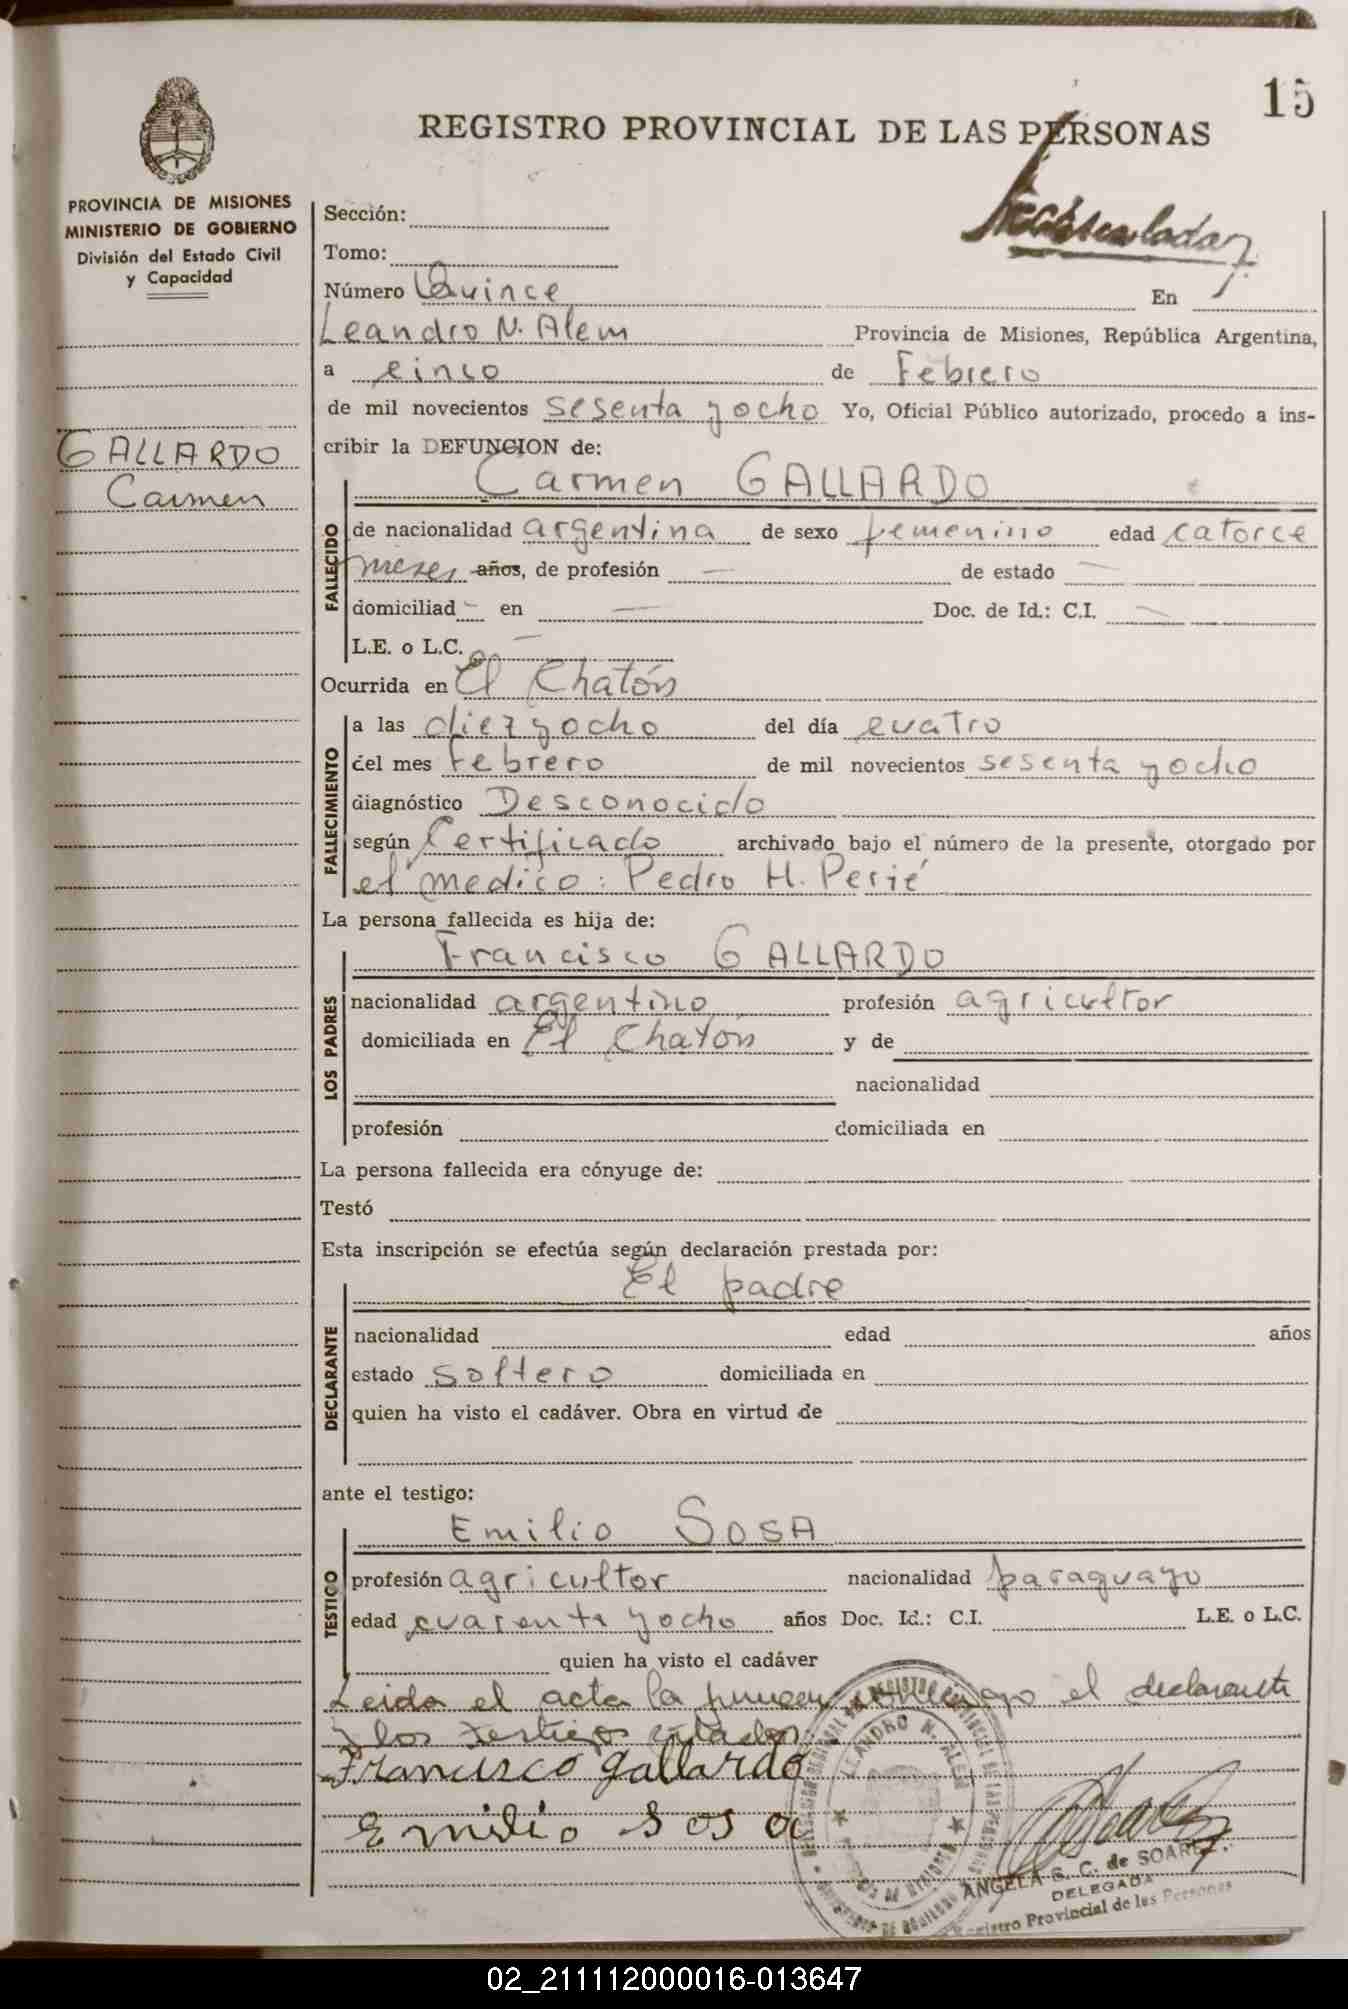 15
REGISTRO PROVINCIAL DE LAS PERSONAS
PROVINCIA DE MISIONES
MINISTERIO DE GOBIERNO
División del Estado Civil
y Capacidad
GALLARDO
Carmen
Sección:
Tomo:
Número Quince En
Leandro N. Alem Provincia de Misiones, República Argentina,
a cinco de Febrero
de mil novecientos sesenta y ocho Yo, Oficial Público autorizado, procedo a ins-
cribir la DEFUNCION de:
Carmen GALLARDO
FALLECIDO
de nacionalidad argentina de sexo femenino edad catorce
meses años, de profesión — de estado —
domiciliad — en — Doc. de Id.: C.I. —
L.E. o L.C. —
Ocurrida en El Chatón
FALLECIMIENTO
a las diez y ocho del día cuatro
del mes febrero de mil novecientos sesenta y ocho
diagnóstico Desconocido
según Certificado archivado bajo el número de la presente, otorgado por
el medico: Pedro H. Perié
La persona fallecida es hija de:
Francisco GALLARDO
LOS PADRES
nacionalidad argentino profesión agricultor
domiciliada en El Chatón y de
nacionalidad
profesión domiciliada en
La persona fallecida era cónyuge de:
Testó
Esta inscripción se efectúa según declaración prestada por:
El padre
DECLARANTE
nacionalidad edad años
estado soltero domiciliada en
quien ha visto el cadáver. Obra en virtud de
ante el testigo:
Emilio SOSA
TESTIGO
profesión agricultor nacionalidad paraguayo
edad cuarenta y ocho años Doc. Id.: C.I. L.E. o L.C.
quien ha visto el cadáver
Leida el acta la firman conmigo el declarante
y los testigos citados
Francisco gallardo
Emilio Sosa
LEANDRO N. ALEM
ANGELA S. C. de SOAREZ
DELEGADA
Registro Provincial de las Personas
02_211112000016-013647